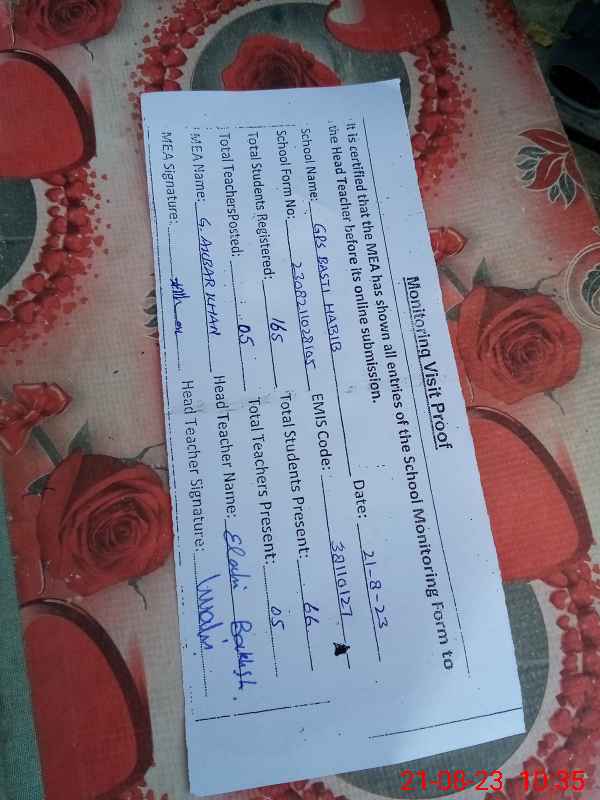 Monitoring Visit Proof
It is certified that the MEA has shown all entries of the School Monitoring Form to
the Head Teacher before its online submission.
Date: 21-8-23
School Name: GPS BASTI HABIB EMIS Code: 38110127
School Form No: 2308211028195 Total Students Present: 66
Total Students Registered: 165 Total Teachers Present: 05
Total TeachersPosted: 05 Head Teacher Name: Elahi Bakhsh.
MEA Name: G. AKBAR KHAN Head Teacher Signature:
MEA Signature:
21-08-23 10:35